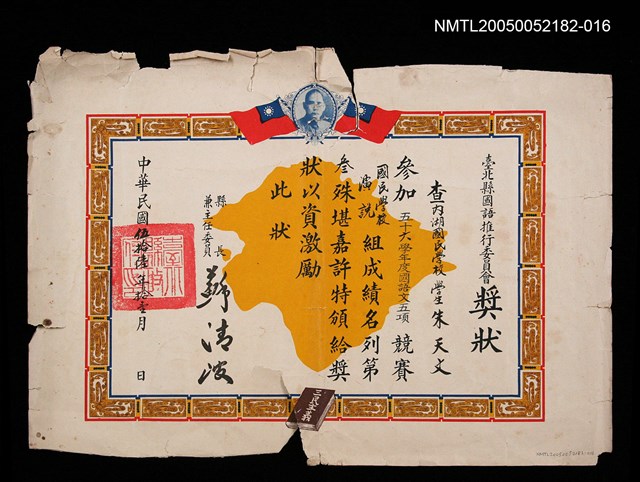 NMTL20050052182-016
臺北縣國語推行委員會獎狀
查內湖國民學校學生朱天文
參加五十六學年度國語文五項競賽
國民學校演說組成績名列第
叁殊堪嘉許特頒給獎
狀以資激勵
此狀
縣長
兼主任委員
蘇清波
中華民國伍拾陸年拾壹月 日
三民主義
NMTL20050052182-016